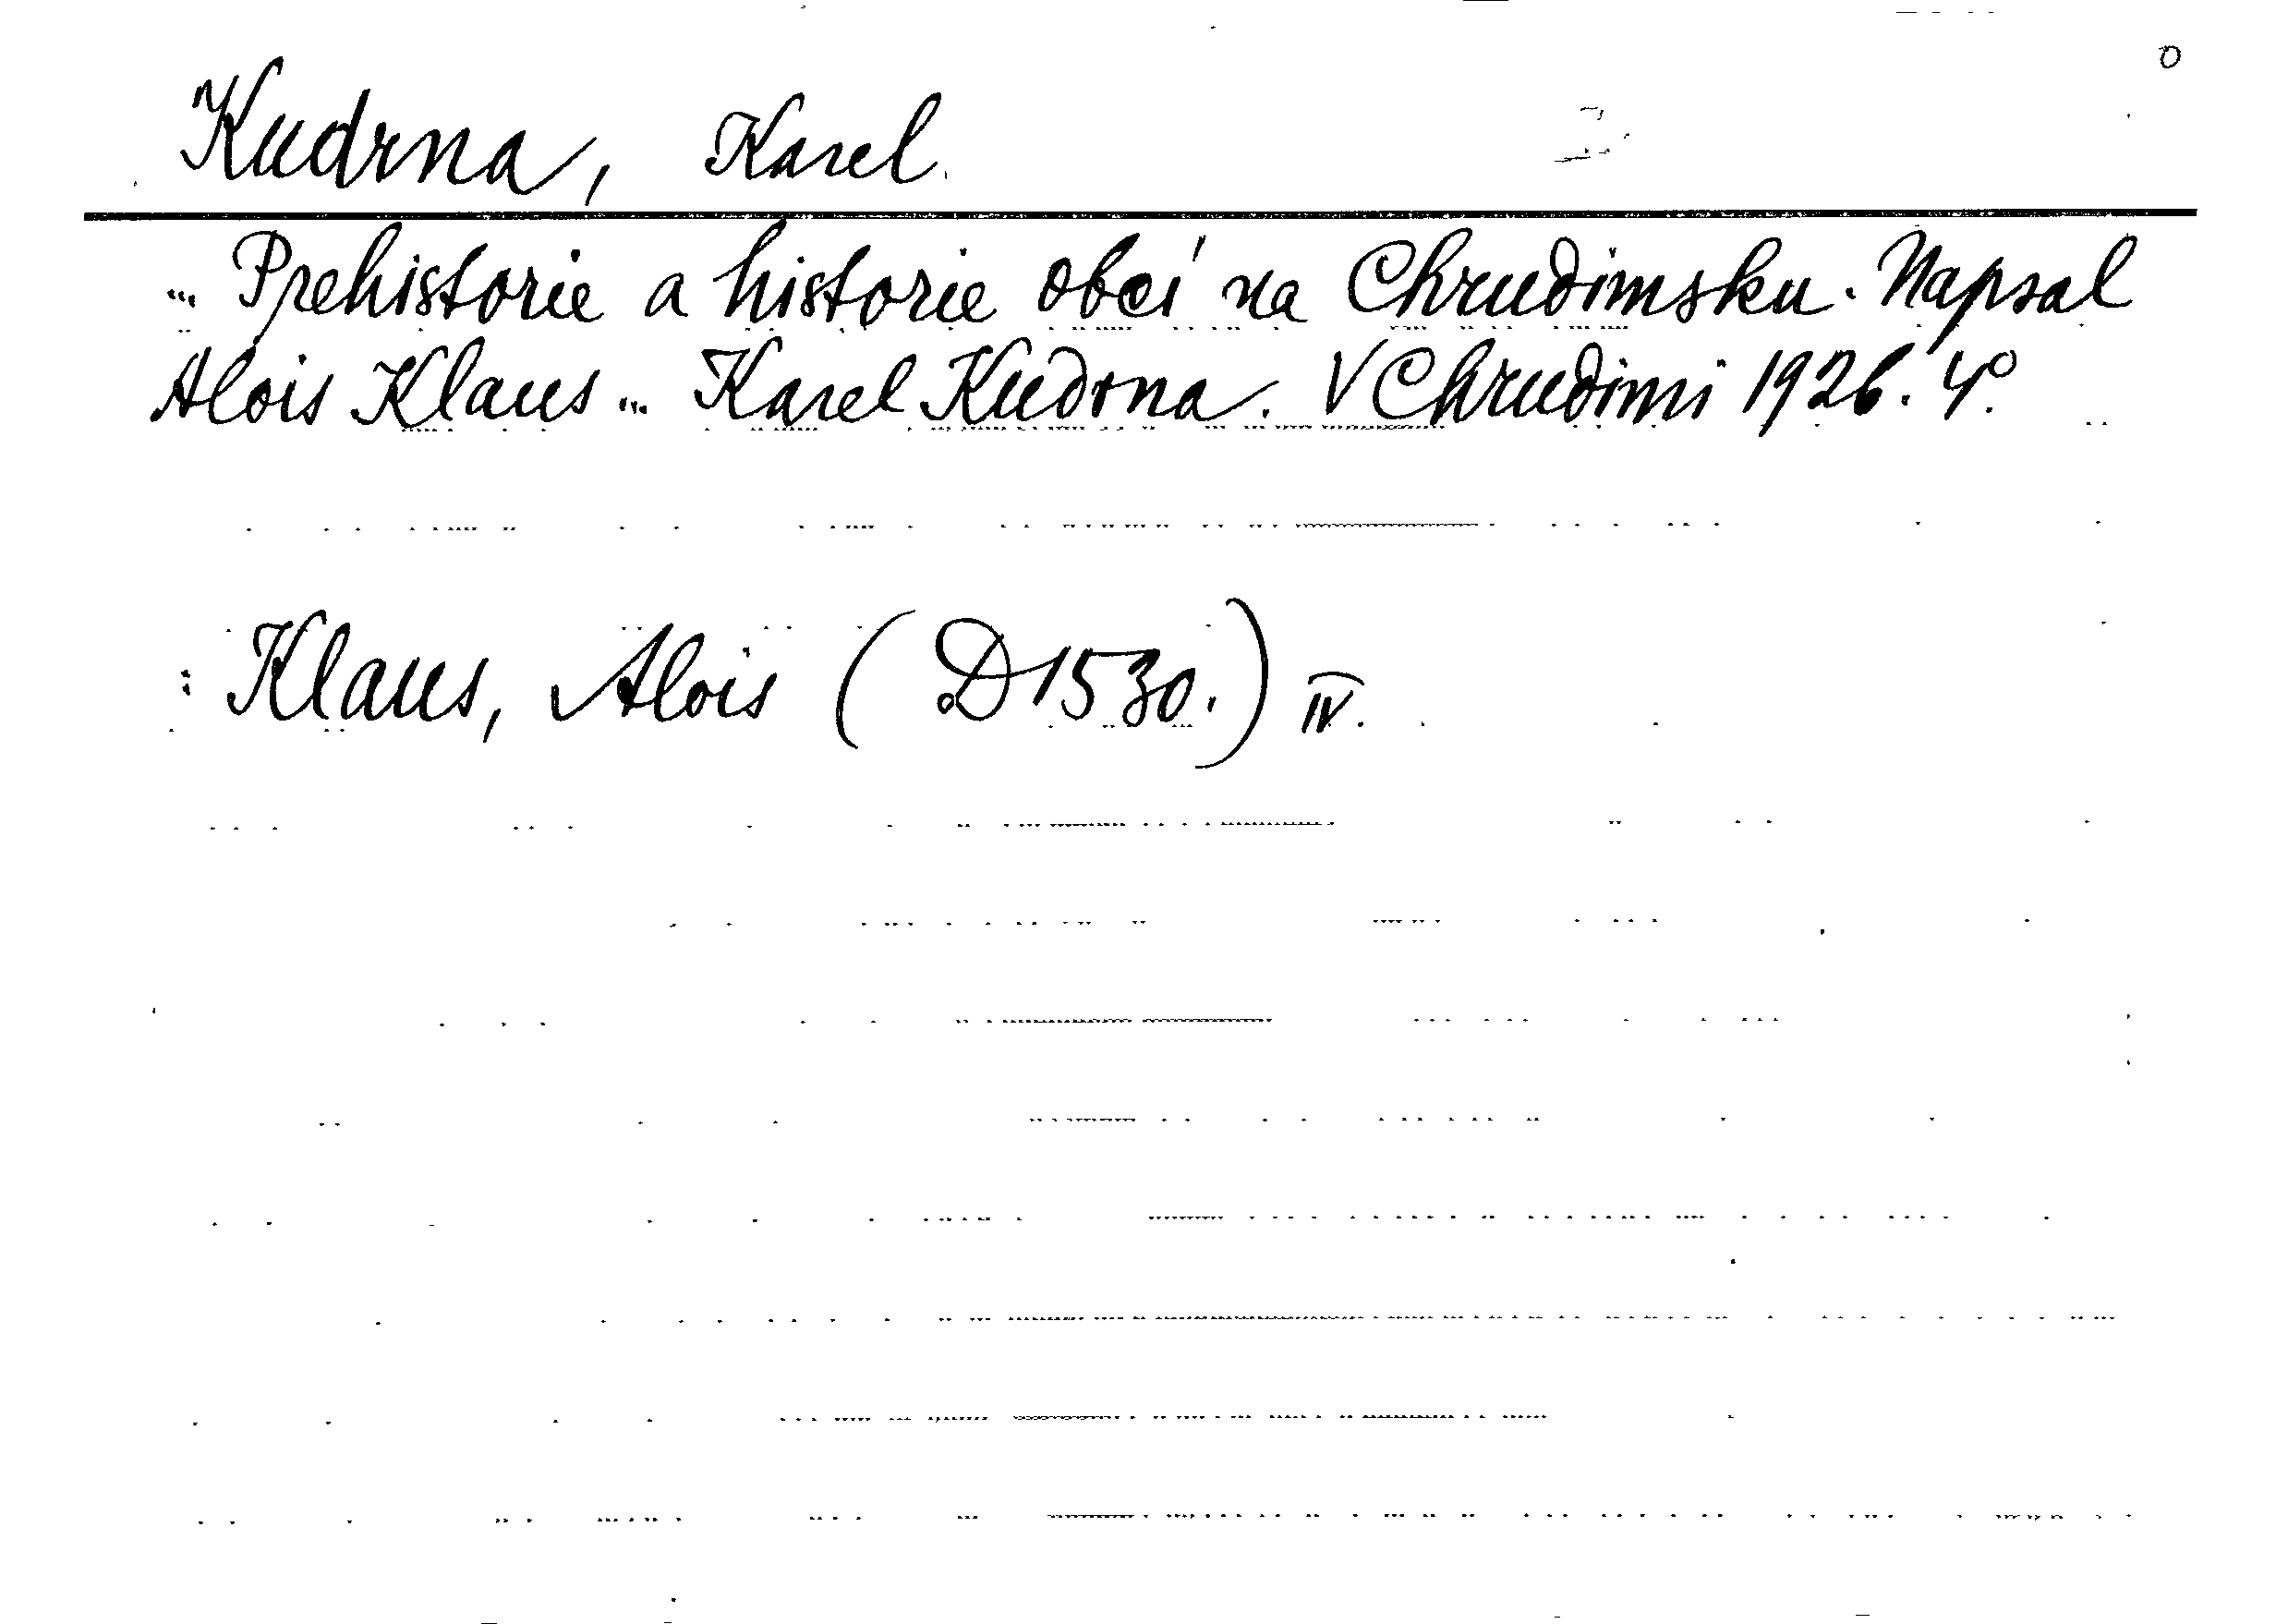 o
Kudrna, Karel.
... Prehistorie a historie obcí na Chrudimsku. Napsal
Alois Klaus ... Karel Kudrna. V Chrudimi 1926. 4°.
: Klaus, Alois (D1530.) IV.